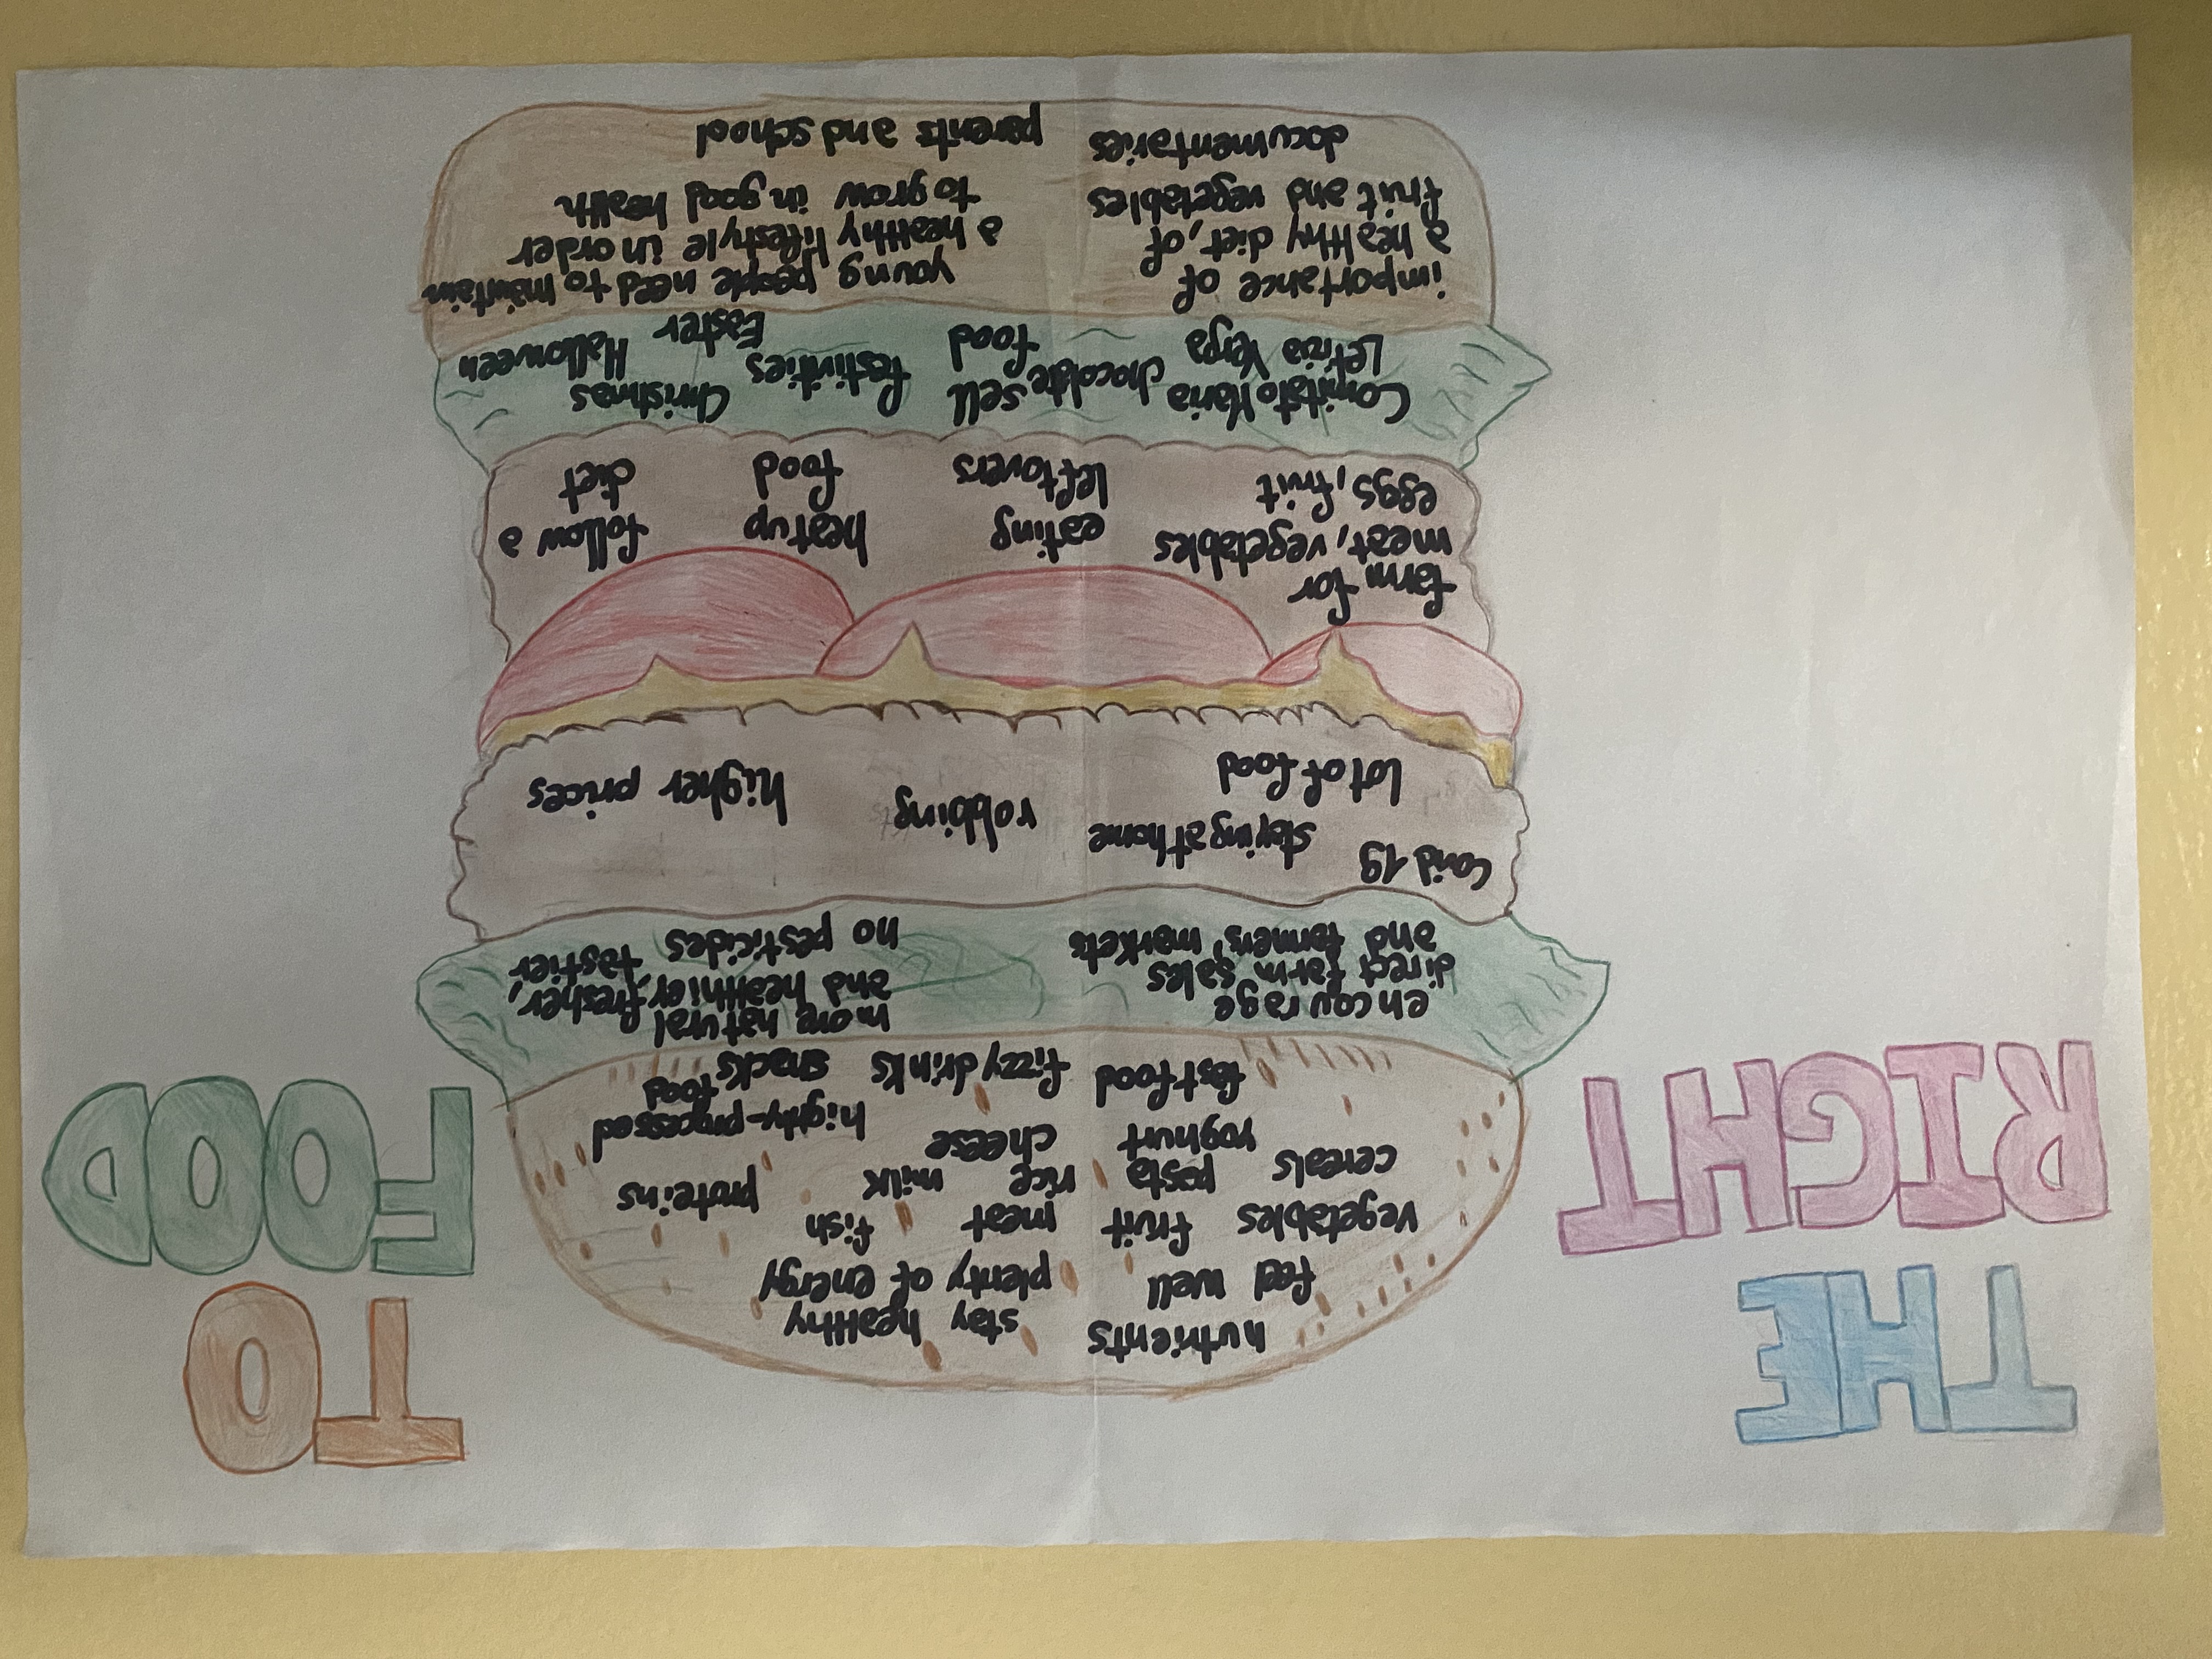 THE
RIGHT
TO
FOOD
nutrients stay healthy
feel well plenty of energy
vegetables fruit meat fish proteins
cereals pasta rice milk
yoghurt cheese highly-processed
food
fast food fizzy drinks snacks
encourage
direct farm sales
and farmers' markets
more natural
and healthier, fresher,
no pesticides tastier
Covid 19 staying at home robbing higher prices
lot of food
farm for
meat, vegetables
eggs, fruit
eating
leftovers
heat up
food
follow a
diet
Comitato Maria
Letizia Verga
chocolate sell
food
festivities
Christmas
Easter
Halloween
importance of
a healthy diet, of
fruit and vegetables
documentaries
young people need to maintain
a healthy lifestyle in order
to grow in good health
parents and school